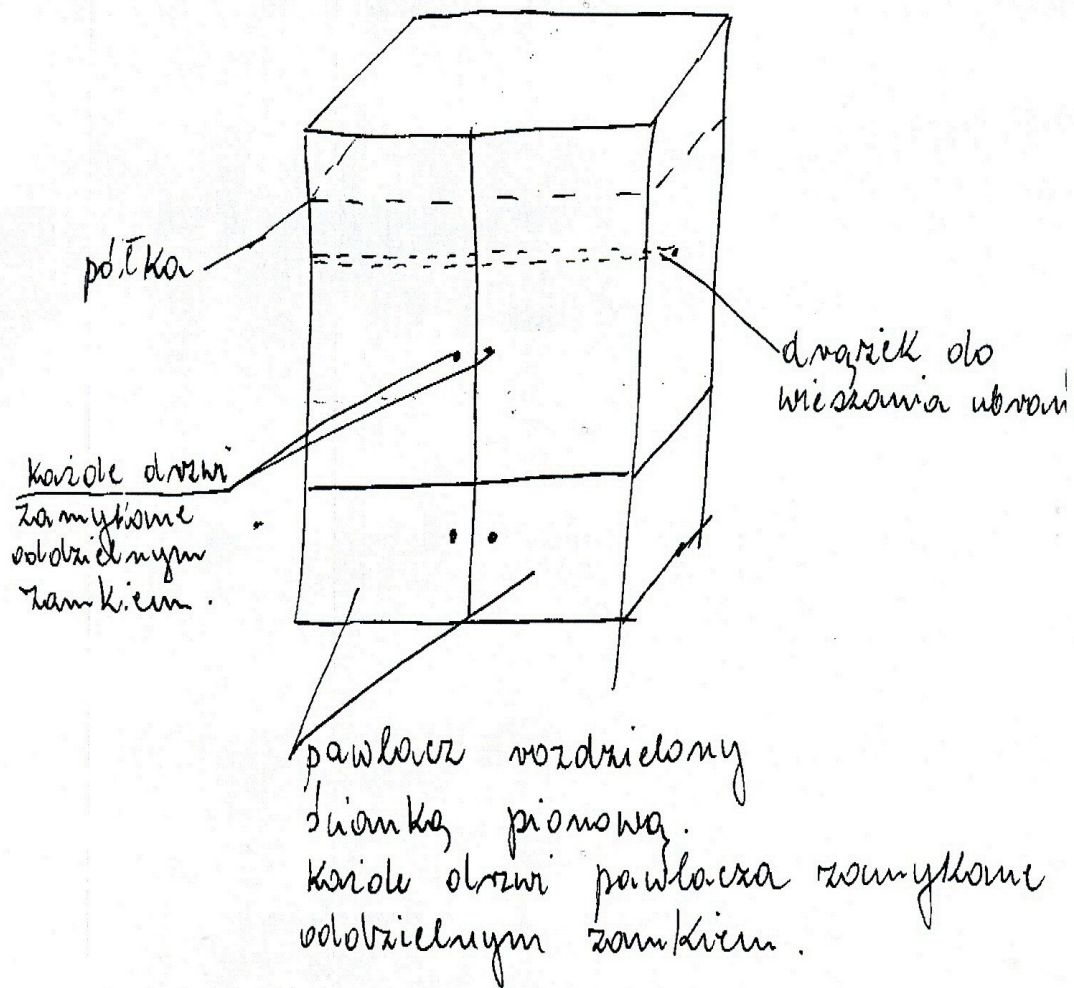 półka
drążek do
wieszania ubrań
każde drzwi
zamykane
oddzielnym
zamkiem.
pawlacz rozdzielony
ścianką pionową.
Każde drzwi pawlacza zamykane
oddzielnym zamkiem.